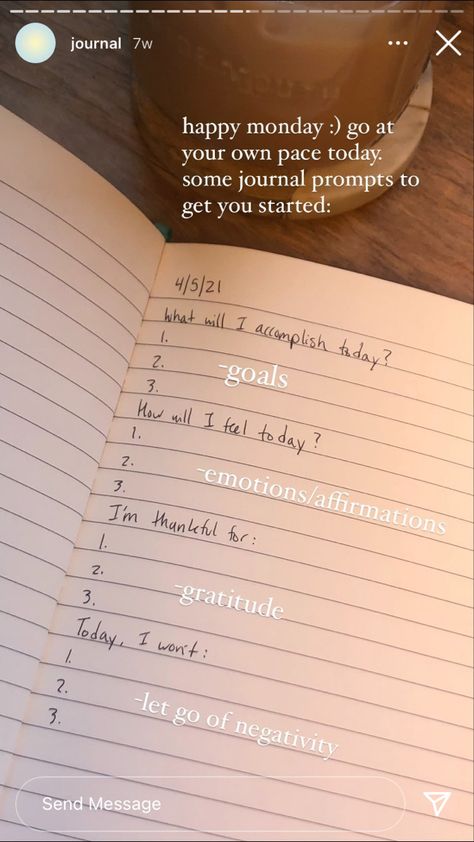 journal 7w
happy monday :) go at
your own pace today.
some journal prompts to
get you started:
4/5/21
What will I accomplish today?
1.
2.
-goals
3.
How will I feel today?
1.
2.
-emotions/affirmations
3.
I'm thankful for:
1.
2.
-gratitude
3.
Today, I won't:
1.
2.
-let go of negativity
3.
Send Message